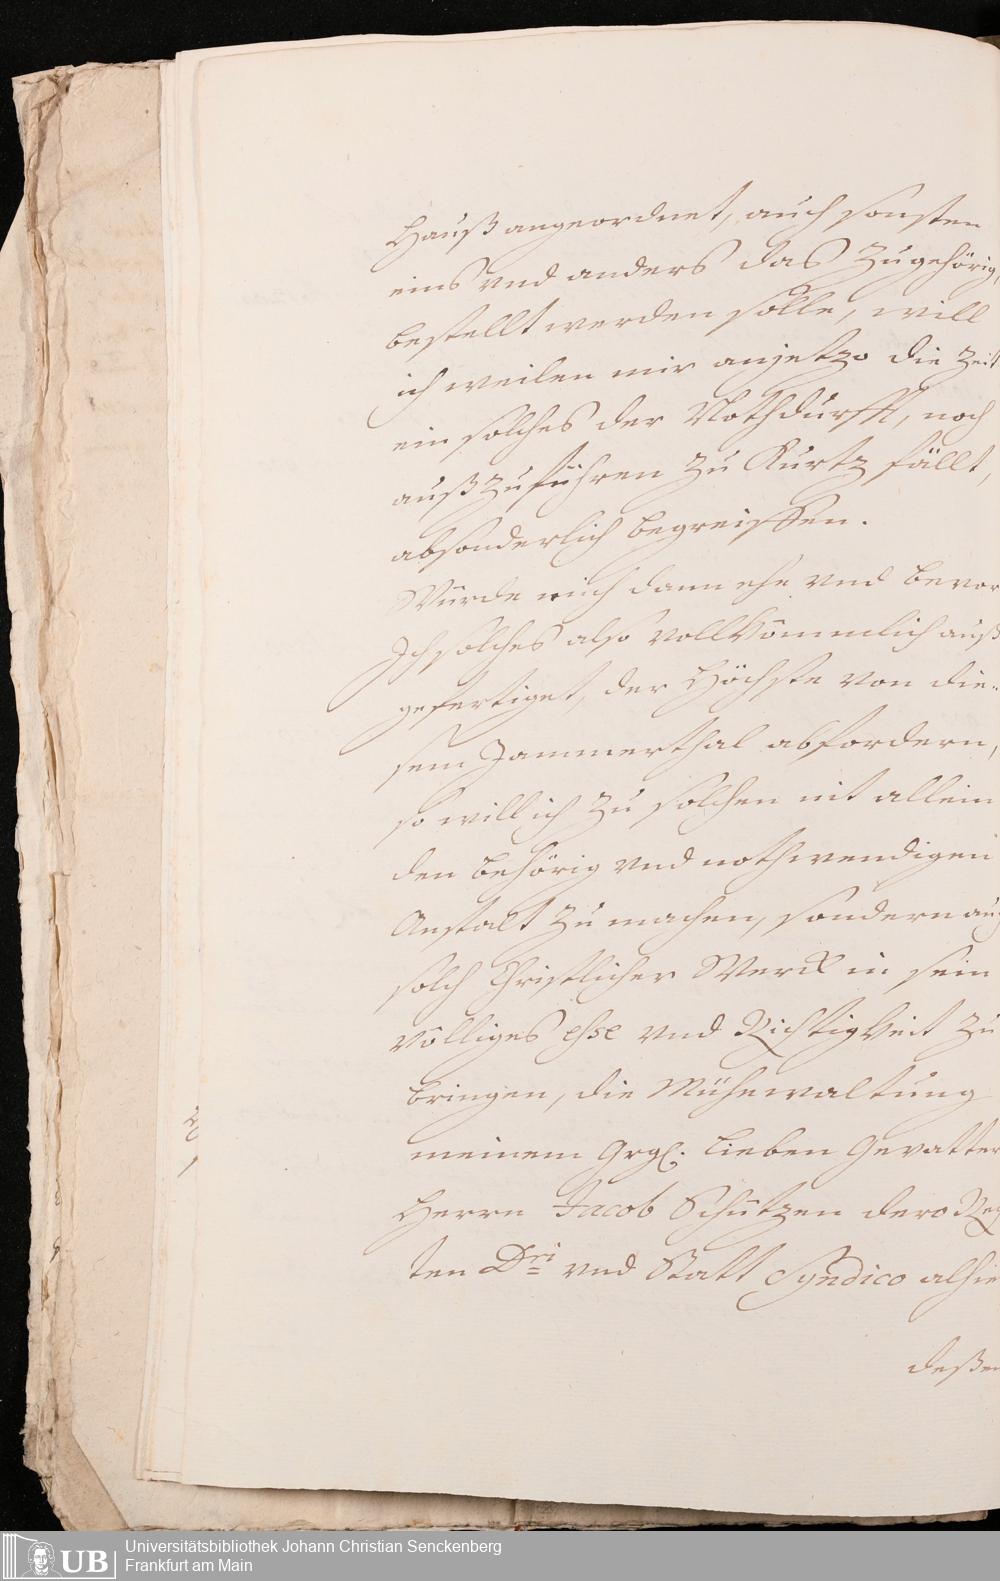 Hauß angeordnet, auch sonsten
eins vnd anders das Zugehörig,
bestellt werden solle, will
ich weilen mir anjetzo die Zeit
ein solches der Nothdurfft, noch
außzuführen zu Kurtz fällt,
absonderlich begreiffen.
Würde mich dann ehe vnd bevor
Ich solches also vollkömmlich auß
gefertiget, der Höchste von die-
sem Jammerthal abfordern,
so will ich zu solchen nit allein
den behörig vnd nothwendigen
Anstalt zu machen, sondern auch
solch Christlicher Werck in sein
völliges esse vnd Richtigkeit zu
bringen, die Mühewaltung
meinem Grgl. lieben Gevatter
Herrn Jacob Schützen dero Rech
ten Dri vnd Statt Syndico alhie
deßen
UB
Universitätsbibliothek Johann Christian Senckenberg
Frankfurt am Main